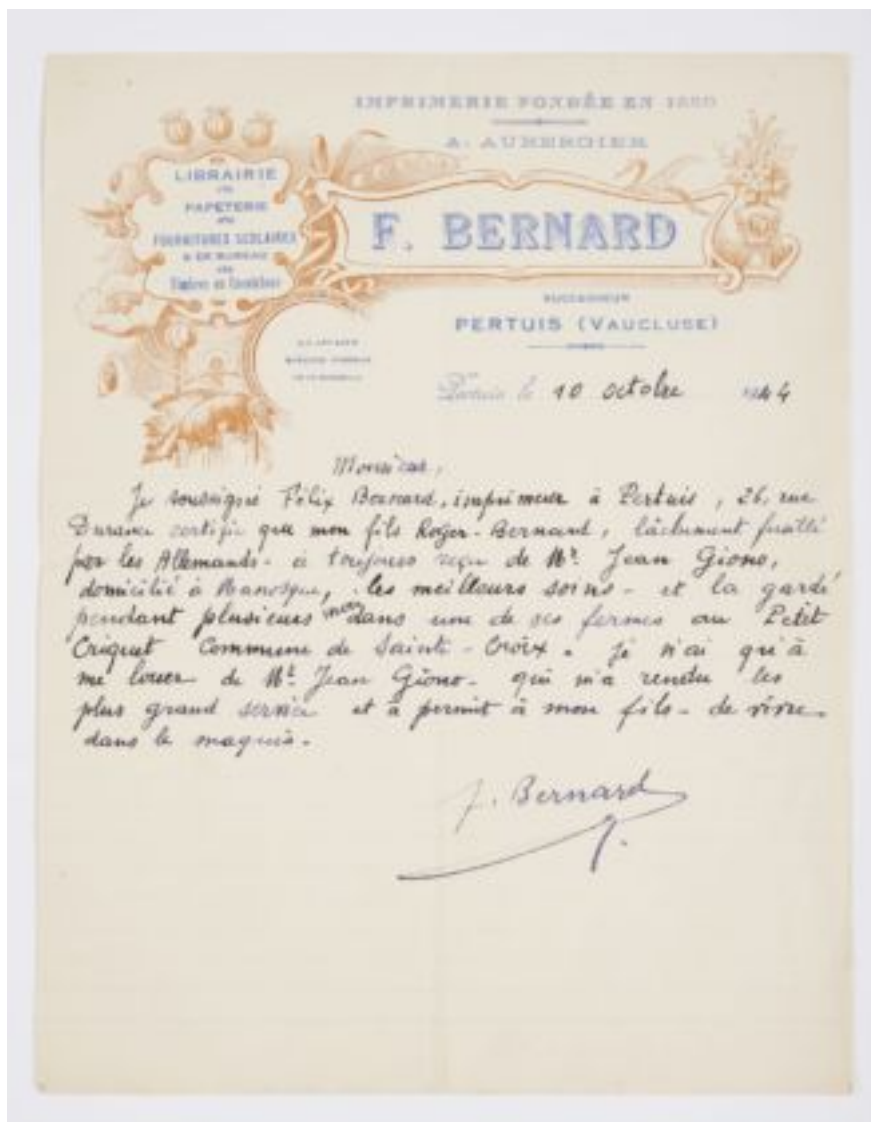 IMPRIMERIE FONDÉE EN
A. AUBERGIER
LIBRAIRIE
PAPETERIE
FOURNITURES SCOLAIRES
& DE BUREAU
Timbres en Caoutchouc
F. BERNARD
SUCCESSEUR
PERTUIS (VAUCLUSE)
Pertuis le 10 octobre 1944
Monsieur,
Je soussigné Félix Bernard, imprimeur à Pertuis, 26, rue
Durance certifie que mon fils Roger-Bernard, lâchement fusillé
par les Allemands - à toujours reçu de Mr. Jean Giono,
domicilié à Manosque, les meilleurs soins - et la gardé
pendant plusieurs mois dans une de ses fermes au Petit
Criquet Commune de Sainte-Croix. je n'ai qu'à
me louer de Mr. Jean Giono - qui m'a rendu les
plus grand service et à permit à mon fils - de vivre
dans le maquis.
F. Bernard